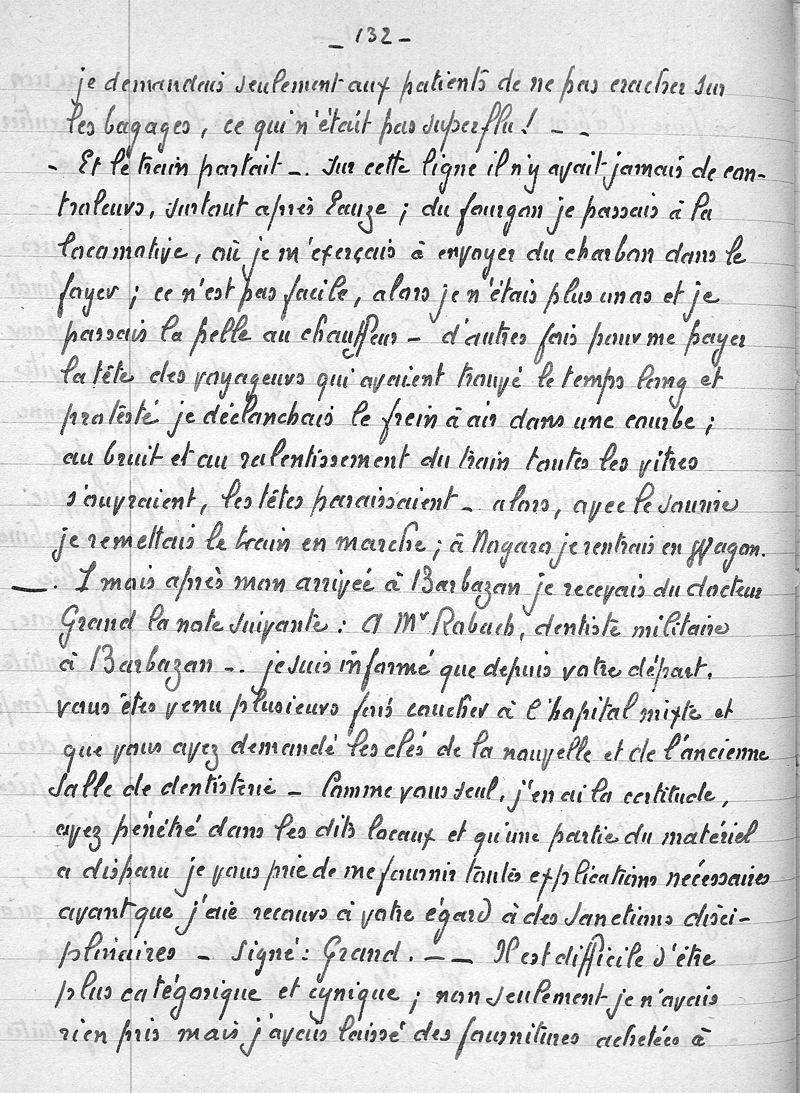 _ 132 _
je demandais seulement aux patients de ne pas cracher sur
les bagages, ce qui n'était pas superflu! _ _
- Et le train partait _. sur cette ligne il n'y avait jamais de con-
troleurs, surtout après Eauze; du fourgon je passais à la
locomotive, où je m'exerçais à envoyer du charbon dans le
foyer; ce n'est pas facile, alors je n'étais plus un as et je
passais la pelle au chauffeur _ d'autres fois pour me payer
la tête des voyageurs qui avaient trouvé le temps long et
protesté je déclanchais le frein à air dans une courbe;
au bruit et au ralentissement du train toutes les vitres
s'ouvraient, les têtes paraissaient _ alors, avec le sourire
je remettais le train en marche; à Nogaro je rentrais en Wagon.
_. 1 mois après mon arrivée à Barbazan je recevais du docteur
Grand la note suivante: A Mr Robach, dentiste militaire
à Barbazan _.. je suis informé que depuis votre départ,
vous êtes venu plusieurs fois coucher à l'hopital mixte et
que vous avez demandé les clés de la nouvelle et de l'ancienne
salle de dentisterie _ Comme vous seul, j'en ai la certitude,
avez pénétré dans les dits locaux et qu'une partie du matériel
a disparu je vous prie de me fournir toutes explications nécessaires
avant que j'aie recours à votre égard à des sanctions disci-
plinaires _ signé: Grand. _ _ Il est difficile d'être
plus catégorique et cynique; non seulement je n'avais
rien pris mais j'avais laissé des fournitures achetées à